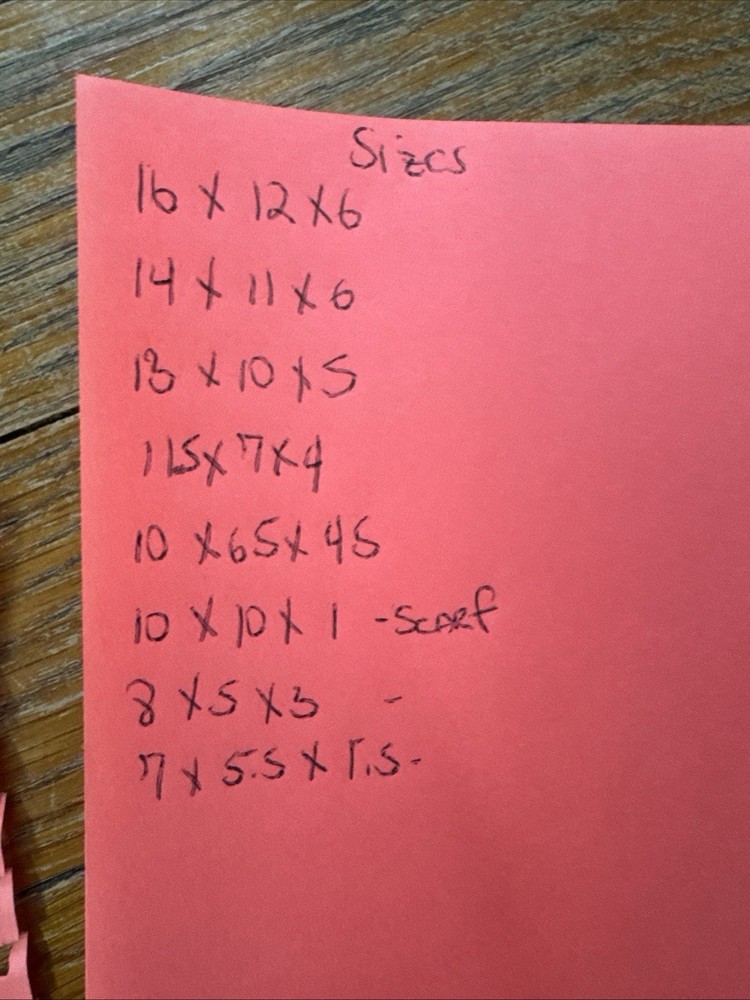 Sizes
16 x 12 x 6
14 x 11 x 6
13 x 10 x 5
11.5 x 7 x 4
10 x 6.5 x 4.5
10 x 10 x 1 - Scarf
8 x 5 x 3 -
7 x 5.5 x 1.5 -